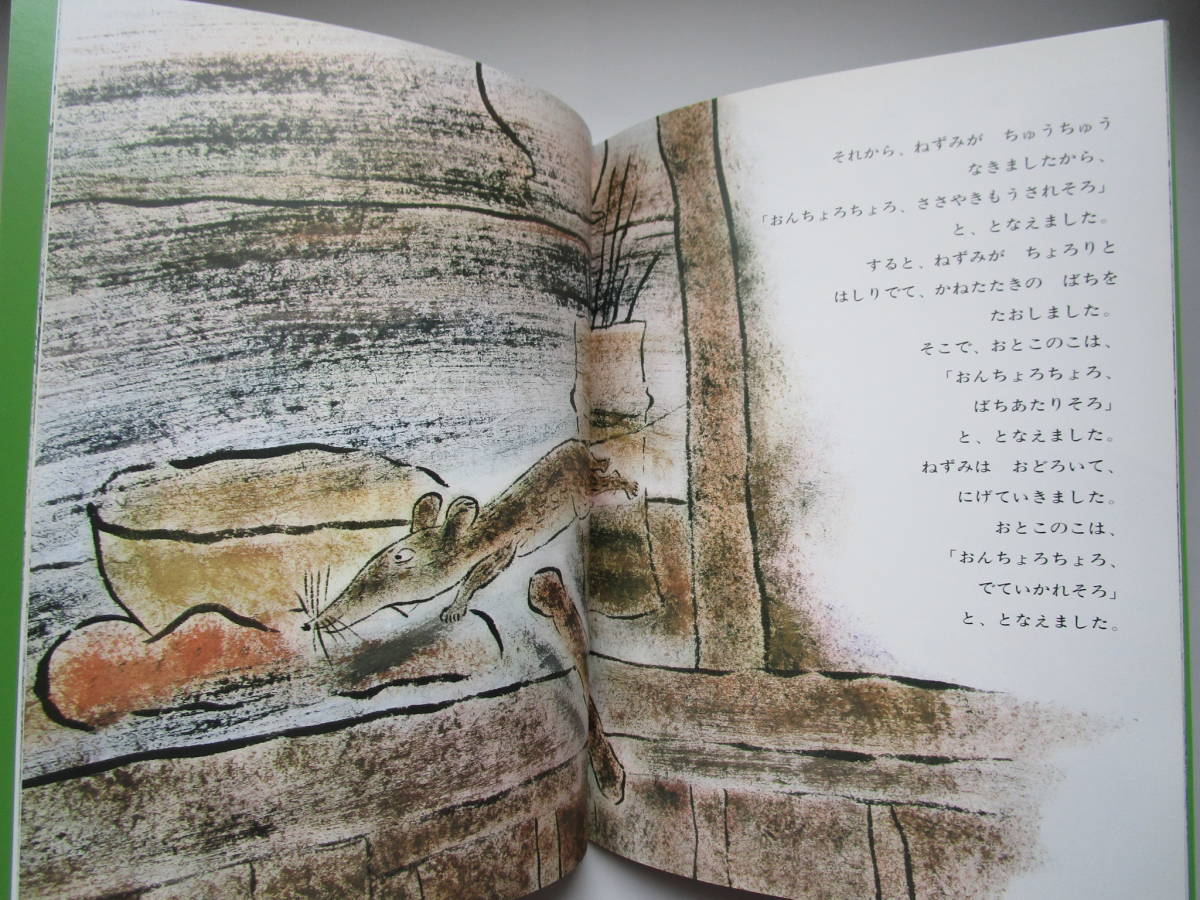 それから、ねずみが　ちゅうちゅう
なきましたから、
「おんちょろちょろ、ささやきもうされそろ」
と、となえました。
すると、ねずみが　ちょろりと
はしりでて、かねたたきの　ばちを
たおしました。
そこで、おとこのこは、
「おんちょろちょろ、
ばちあたりそろ」
と、となえました。
ねずみは　おどろいて、
にげていきました。
おとこのこは、
「おんちょろちょろ、
でていかれそろ」
と、となえました。